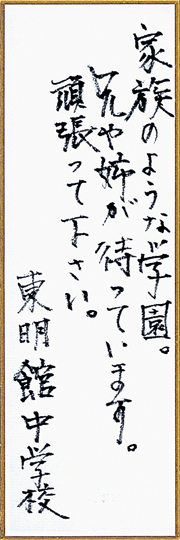 家族のような学園。
兄や姉が待っています。
頑張って下さい。
東明館中学校